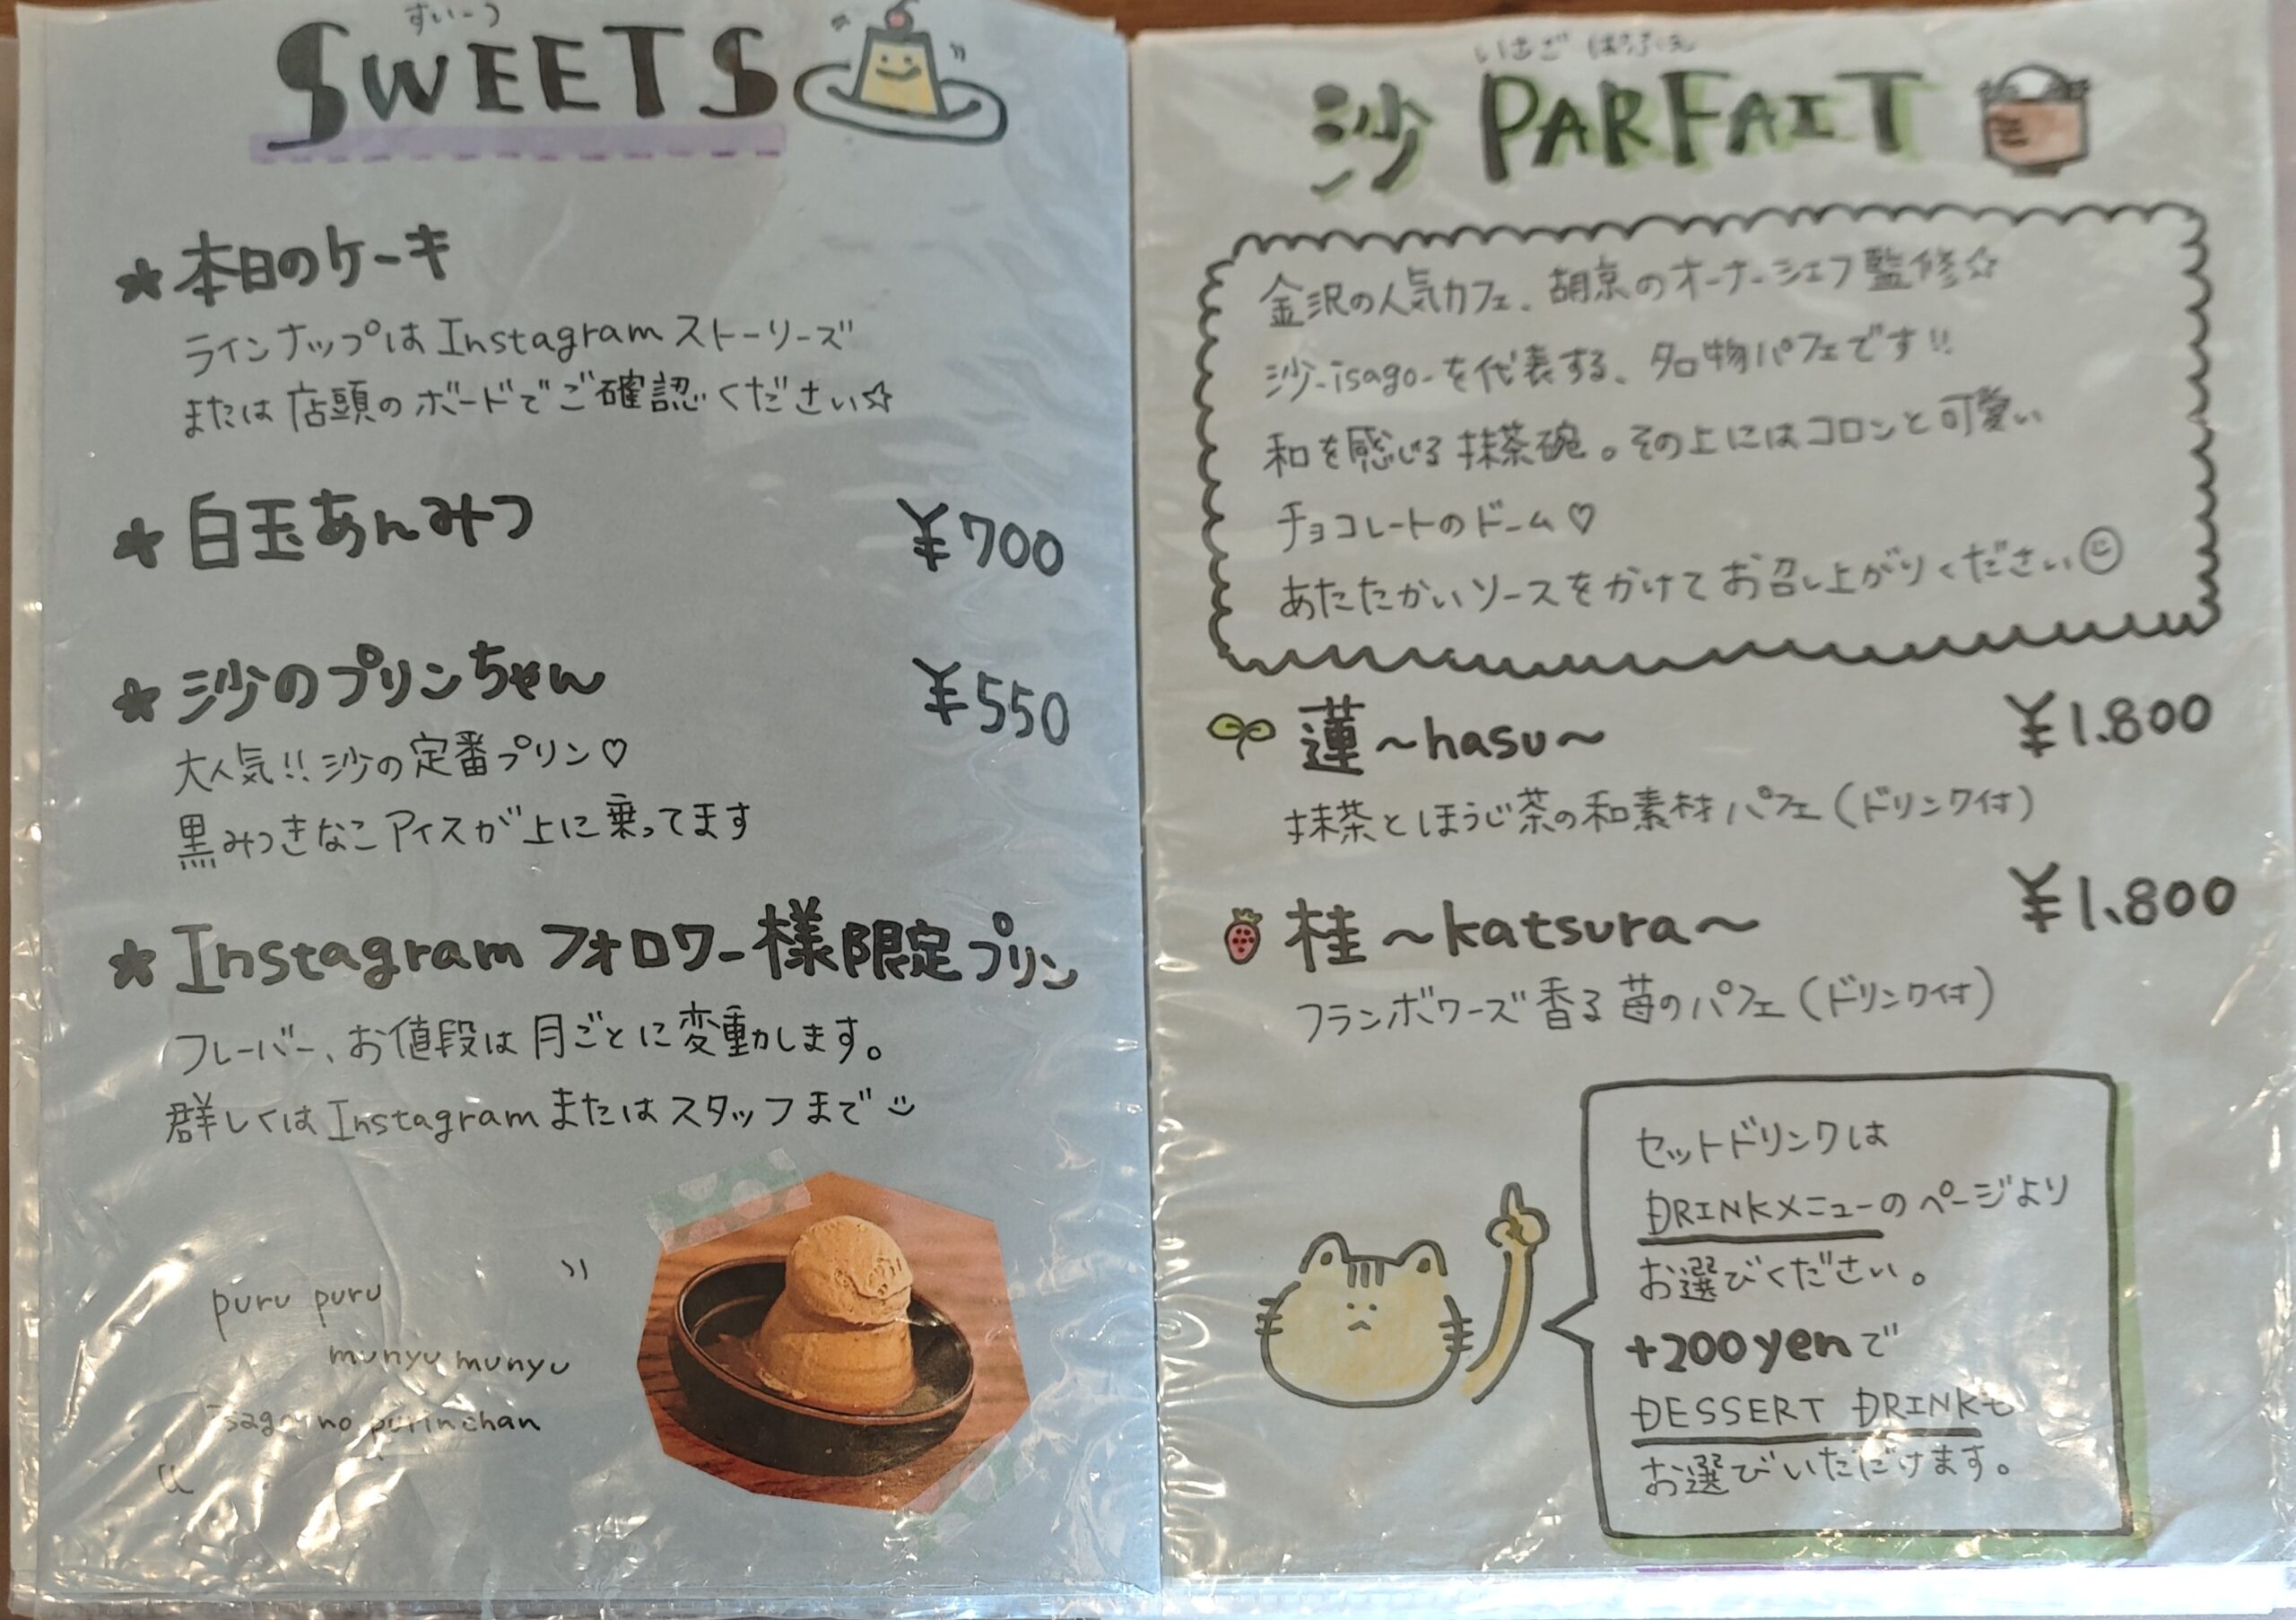 すいーつ
SWEETS
★本日のケーキ
ラインナップはInstagramストーリーズ
または店頭のボードでご確認ください☆
★白玉あんみつ ¥700
★沙のプリンちゃん ¥550
大人気!!沙の定番プリン♡
黒みつきなこアイスが上に乗ってます
★Instagramフォロワー様限定プリン
フレーバー、お値段は月ごとに変動します。
群しくはInstagramまたはスタッフまで
puru puru
munyu munyu
isago no purinchan
いさご ぱふぇ
沙 PARFAIT
金沢の人気カフェ、胡京のオーナーシェフ監修☆
沙-isago-を代表する、名物パフェです!!
和を感じる抹茶碗。その上にはコロンと可愛い
チョコレートのドーム♡
あたたかいソースをかけてお召し上がりください
蓮〜hasu〜 ¥1,800
抹茶とほうじ茶の和素材パフェ(ドリンク付)
桂〜katsura〜 ¥1,800
フランボワーズ香る苺のパフェ(ドリンク付)
セットドリンクは
DRINKメニューのページより
お選びください。
+200yenで
DESSERT DRINKも
お選びいただけます。